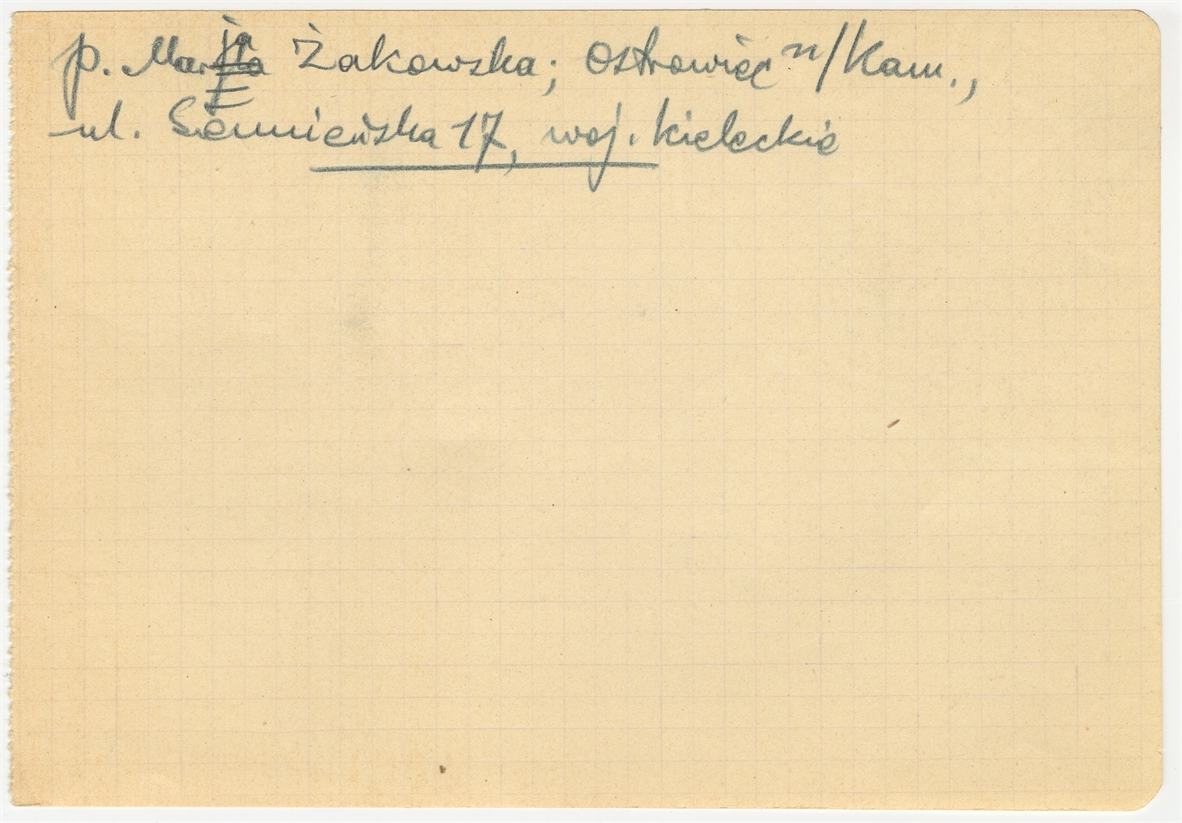 p. Marja Żakowska; Ostrowiec n/Kam.,
ul. Siennieńska 17, woj. kieleckie